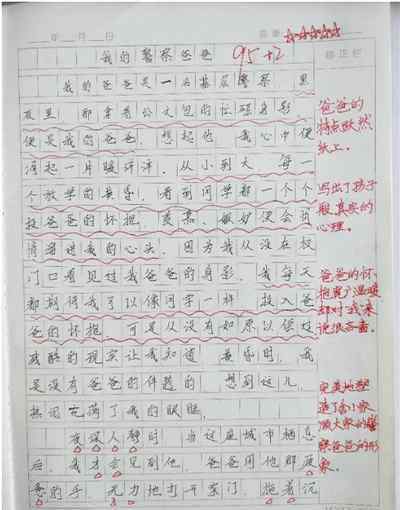 年 月 日
我的警察爸爸
95+2
我的爸爸是一名基层警察，黑
夜里，那拿着公文包的忙碌身影
便是我的爸爸，想起他，我心中便
荡起一片暖洋洋。从小到大，每一
个放学的黄昏，看到同学都一个个
投爸爸的怀抱，羡慕、嫉妒便会的
情涌进我的心头。因为我从没在校
门口看见过我爸爸的身影。我每天
都期待我可以像同学一样，投入爸
爸的怀抱，可是从没有如愿以偿过
残酷的现实让我知道，黄昏时，我
是没有爸爸的伴随的，想到这儿，
热泪充满了我的眼眶。
夜深人静时，当这座城市栖息
后，我才会见到他。爸爸用他那疲
惫的手，无力地打开家门，拖着沉
爸爸的
特点跃然
纸上。
写出了孩子
般真实的
心理。
爸爸的怀
抱宽广温暖
却对我来
说很吝啬。
完美地塑
造了舍小家
顾大家的警
察爸爸的形
象。